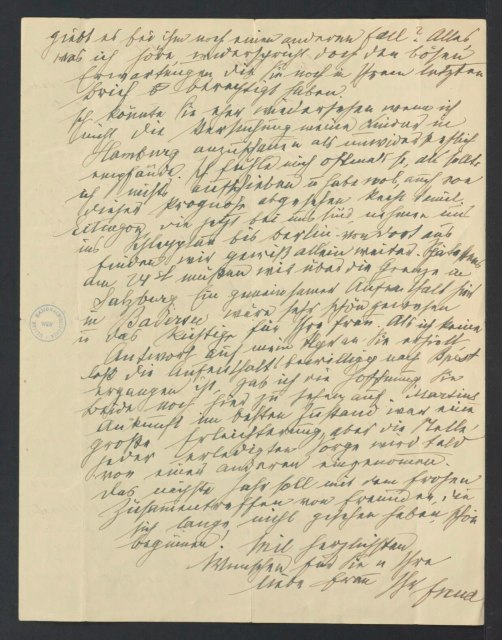 giebt es bei ihm noch einen anderen Fall? Alles
was ich höre, widerspricht doch den bösen
Erwartungen die Sie noch in Ihrem letzten
Brief berechtigt haben.
Ich könnte Sie eher wiedersehen wenn ich
nicht die Versuchung meine Kinder in
Hamburg anzuschauen als unwiderstehlich
empfände. Ich fühle mich oftmals so, als sollte
ich nichts aufschieben u habe wol auch von
dieser Prognose abgesehen Recht
die jetzt bei uns sind nehmen mich
ins Schlepptau bis Berlin. von dort aus
finden wir gewiß allein weiter. Spätestens
am 24st müßen wir über die Grenze in
Salzburg. Ein gemeinsamer Aufenthalt hier
in Baiern wäre sehr schön gewesen
u das Richtige für Ihre Frau. Als ich keine
Antwort auf mein erhielt
daß die Aufenthaltsbewilligg nach
ergangen ist, gab ich die Hoffnung Sie
beide noch hier zu sehen auf. Martins
Ankunft im besten Zustand war eine
große Erleichterung, aber die Stelle
jeder erledigten Sorge wird bald
von einer anderen eingenommen.
Das nächste Jahr soll mit dem frohen
Zusammentreffen von Freunden, die
sich lange nicht gesehen haben schön
beginnen! Mit herzlichsten
Wünschen für Sie u Ihre
liebe Frau Ihr Freud